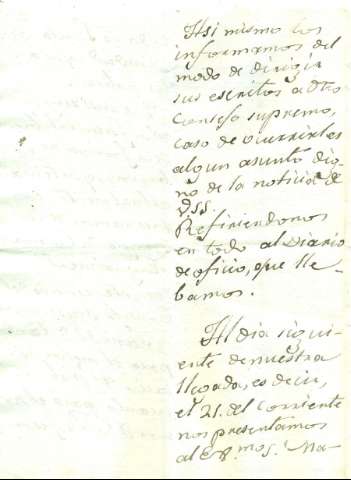 Asi mismo los
informamos del
modo de dirigir
sus escritos a Dho
Consejo supremo,
caso de ocurrirles
algun asunto dig-
no de la noticia de
SS.
Refiriendonos
en todo al Diario
de oficio, que lle-
bamos.
Al dia sigui-
ente de nuestra
llegada, es decir,
el 21. del corriente
nos presentamos
al Exmo. S. Ma-